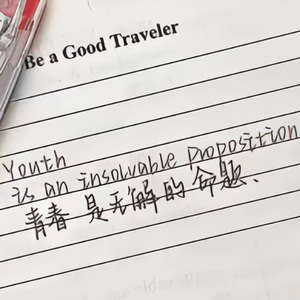 Be a Good Traveler
Youth
is an insolvable proposition
青春是无解的命题、